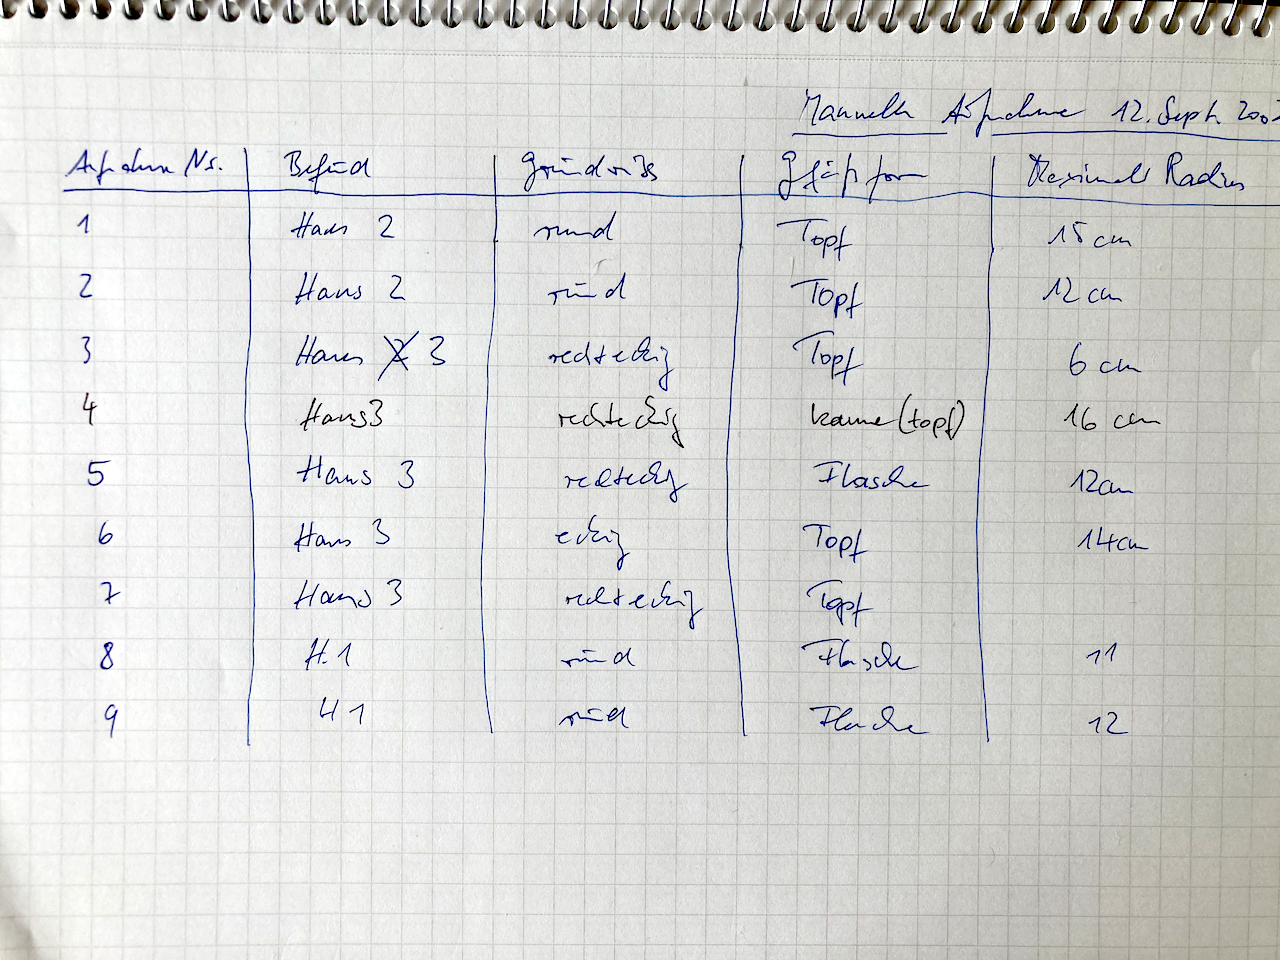 Manuelle Aufnahme 12. Sept.
Aufnahme Nr. Befund Grundriss Gefäßform Maximaler Radius
1 Haus 2 rund Topf 15 cm
2 Haus 2 rund Topf 12 cm
3 Haus 3 rechteckig Topf 6 cm
4 Haus3 rechteckig kanne(topf) 16 cm
5 Haus 3 rechteckig Flasche 12cm
6 Haus 3 eckig Topf 14cm
7 Haus 3 rechteckig Topf
8 H.1 rund Flasche 11
9 H 1 rund Flasche 12